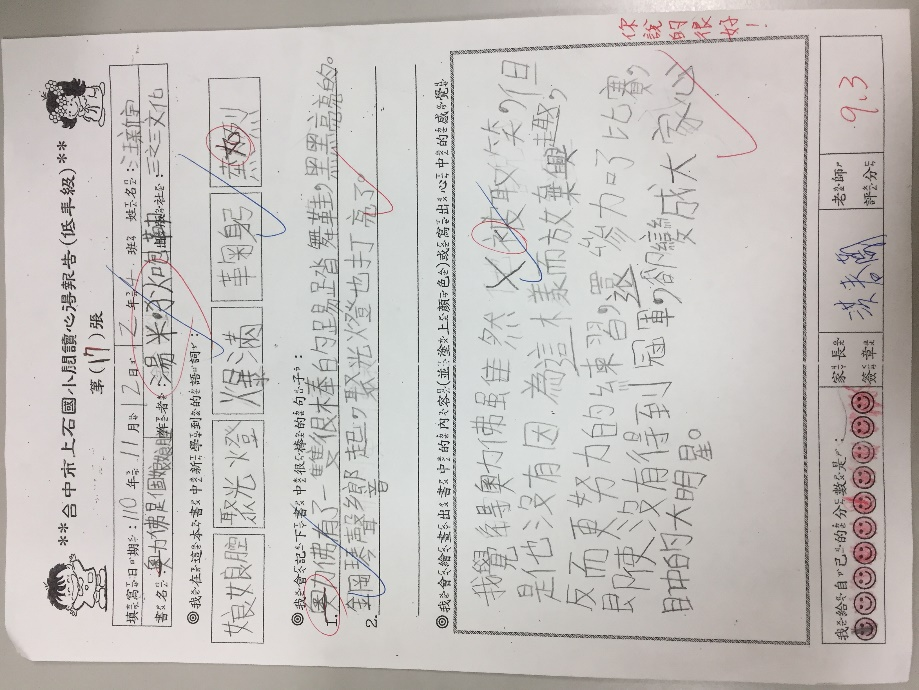 你說的很好!
**台中市上石國小閱讀心得報告(低年級)**
第(17)張
填寫日期:110年11月12日 二年 班 姓名:汪宥宇
書名:奧力佛是個娘娘腔 作者:湯米.狄咆勒 出版社:三之三文化
◎我在這本書中新學到的語詞:
娘娘腔 聚光燈 爆滿 鞠躬 熱烈
◎我會記下書中很棒的句子:
1.奧力佛有了一雙很棒的踢踏舞鞋,黑黑亮亮的。
2.鋼琴聲響起,聚光燈也打亮了。
◎我會繪畫出書中的內容(並塗上顏色)或寫出心中的感覺
我覺得奧力佛雖然 被取笑,但
是他沒有因為這樣而放棄興趣,
反而更努力的練習,還參加了比賽,
即使沒有得到冠軍,卻變成大家心
目中的大明星。
我給自己的分數是:
家長簽章
老師評分
93